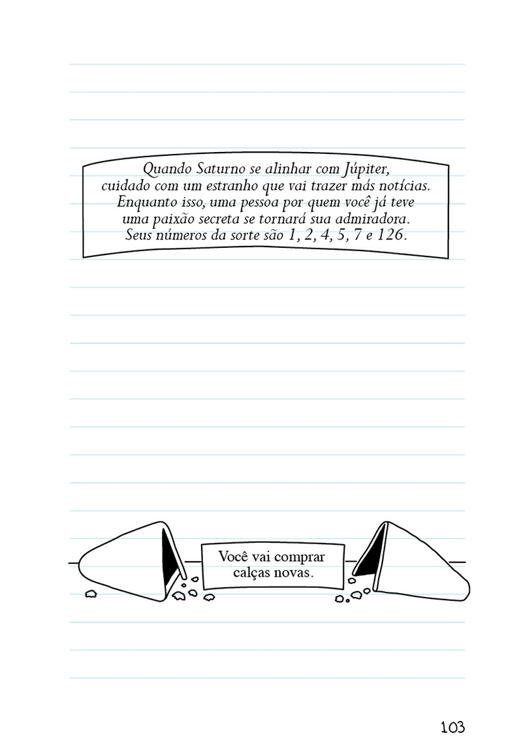 Quando Saturno se alinhar com Júpiter,
cuidado com um estranho que vai trazer más notícias.
Enquanto isso, uma pessoa por quem você já teve
uma paixão secreta se tornará sua admiradora.
Seus números da sorte são 1, 2, 4, 5, 7 e 126.
Você vai comprar
calças novas.
103